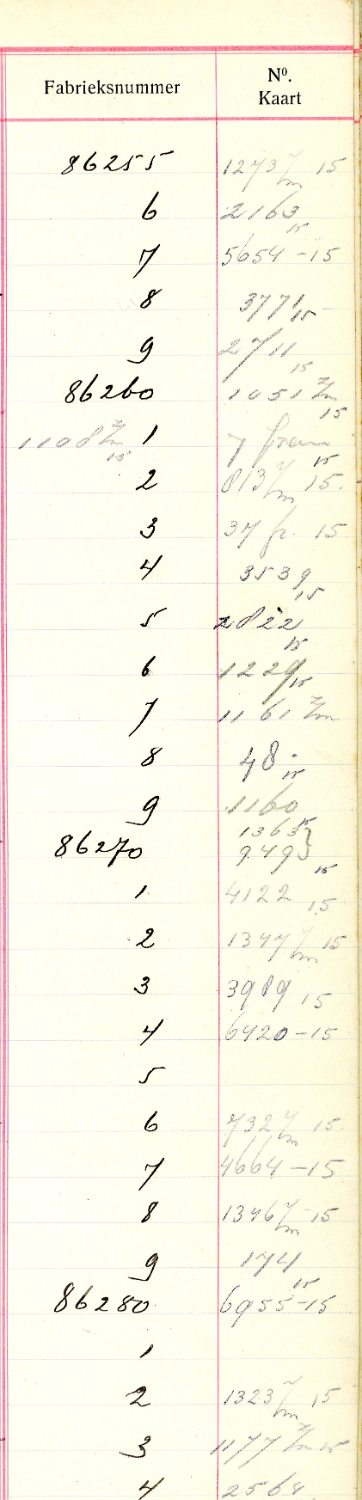 Fabrieksnummer Nº. Kaart
86255 1273 15
6 2163 15
7 5654 - 15
8 3771 15
9 2711 15
86260 1051 15
1108 15 1 15
2 813 15
3 37 fr. 15
4 3539 15
5 2822 15
6 1229 15
7 1161
8 48 15
9 1160
1363 15
86270 949 15
1 4122 15
2 15
3 3989 15
4 6920 - 15
5
6 732 15
7 4664 - 15
8 15
9 174 15
86280 6955 - 15
1
2 1323 15
3 1177 15
4 2568